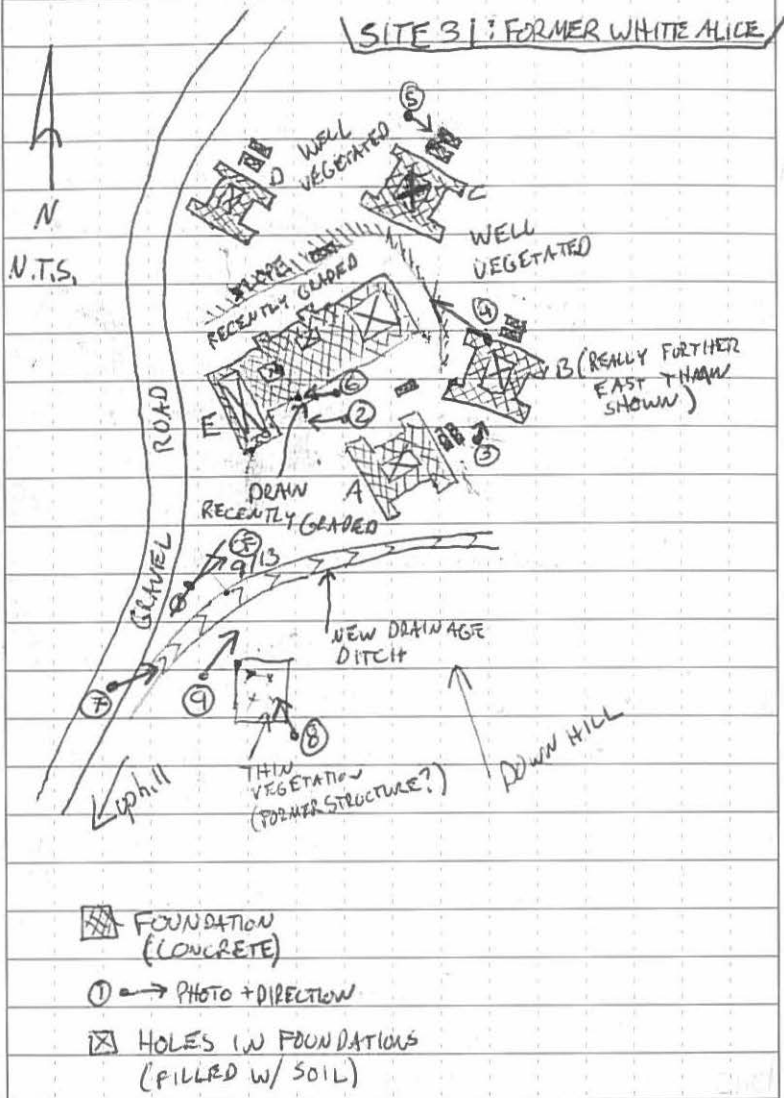 SITE 31: FORMER WHITE ALICE
N
N.T.S.
5
D
WELL
VEGETATED
C
WELL
VEGETATED
SLOPE
RECENTLY GRADED
4
B (REALLY FURTHER
EAST THAN
SHOWN)
6
2
E
3
A
DRAIN
RECENTLY GRADED
GRAVEL ROAD
9/13
NEW DRAINAGE
DITCH
7
9
8
THIN
VEGETATION
(FORMER STRUCTURE?)
DOWN HILL
uphill
FOUNDATION
(CONCRETE)
1 PHOTO + DIRECTION
HOLES IN FOUNDATIONS
(FILLED W/ SOIL)